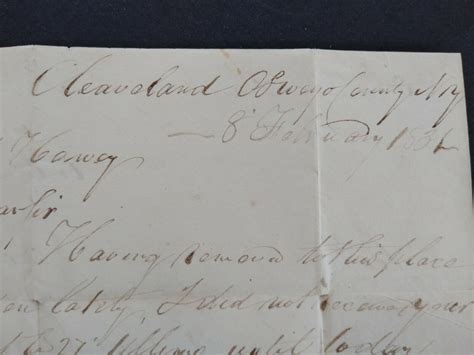 Cleaveland Oswego County NY
8th February 18
Harvey
Having removed to this place
lately, I did not receive your
27 ultimo until today